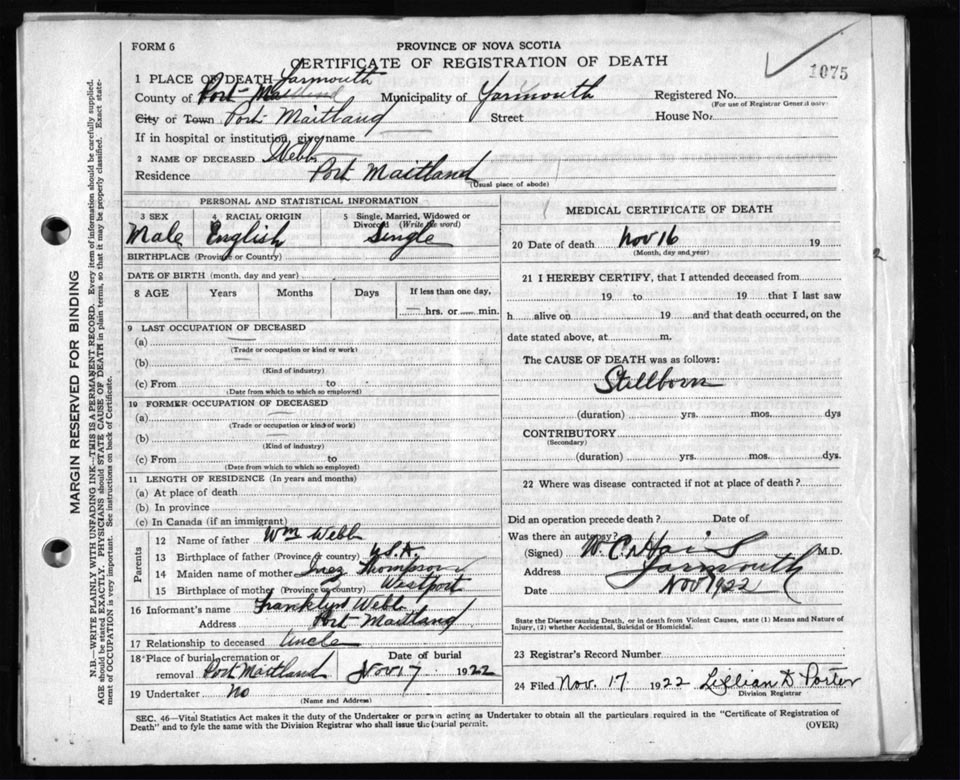 FORM 6
PROVINCE OF NOVA SCOTIA
CERTIFICATE OF REGISTRATION OF DEATH
1075
1 PLACE OF DEATH Yarmouth
County of Port Maitland Municipality of Yarmouth Registered No.
(For use of Registrar General only
City or Town Port Maitland Street House No.
If in hospital or institution, give name
2 NAME OF DECEASED Webb
Residence Port Maitland
(Usual place of abode)
PERSONAL AND STATISTICAL INFORMATION
3 SEX 4 RACIAL ORIGIN 5 Single, Married, Widowed or Divorced (Write the word)
Male English Single
BIRTHPLACE (Province or Country)
DATE OF BIRTH (month, day and year)
8 AGE Years Months Days If less than one day,
hrs. or min.
9 LAST OCCUPATION OF DECEASED
(a)
(Trade or occupation or kind or work)
(b)
(Kind of industry)
(c) From to
(Date from which to which so employed)
10 FORMER OCCUPATION OF DECEASED
(a)
(Trade or occupation or kind of work)
(b)
(Kind of industry)
(c) From to
(Date from which to which so employed)
11 LENGTH OF RESIDENCE (In years and months)
(a) At place of death
(b) In province
(c) In Canada (if an immigrant)
Parents
12 Name of father Wm Webb
13 Birthplace of father (Province or country) U.S.A.
14 Maiden name of mother Inez Thompson
15 Birthplace of mother (Province or country) Westport
16 Informant's name Franklyn Webb
Address Port Maitland
17 Relationship to deceased Uncle
18 Place of burial, cremation or removal Port Maitland Date of burial Nov 17 1922
19 Undertaker No
(Name and Address)
MEDICAL CERTIFICATE OF DEATH
20 Date of death Nov 16 19
(Month, day and year)
21 I HEREBY CERTIFY, that I attended deceased from
19 to 19 that I last saw
h alive on 19 and that death occurred, on the
date stated above, at m.
The CAUSE OF DEATH was as follows:
Stillborn
(duration) yrs. mos. dys
CONTRIBUTORY
(Secondary)
(duration) yrs. mos. dys.
22 Where was disease contracted if not at place of death?
Did an operation precede death? Date of
Was there an autopsy?
(Signed) W. C. M.D.
Address Yarmouth
Date Nov 22
State the Disease causing Death, or in death from Violent Causes, state (1) Means and Nature of
Injury, (2) whether Accidental, Suicidal or Homicidal.
23 Registrar's Record Number
24 Filed Nov. 17 1922 Lillian D Porter
Division Registrar
SEC. 46—Vital Statistics Act makes it the duty of the Undertaker or person acting as Undertaker to obtain all the particulars required in the "Certificate of Registration of
Death" and to fyle the same with the Division Registrar who shall issue the burial permit. (OVER)
MARGIN RESERVED FOR BINDING
N.B.—WRITE PLAINLY WITH UNFADING INK—THIS IS A PERMANENT RECORD. Every item of information should be carefully supplied.
AGE should be stated EXACTLY. PHYSICIANS should STATE CAUSE OF DEATH in plain terms, so that it may be properly classified. Exact state-
ment of OCCUPATION is very important. See instructions on back of Certificate.